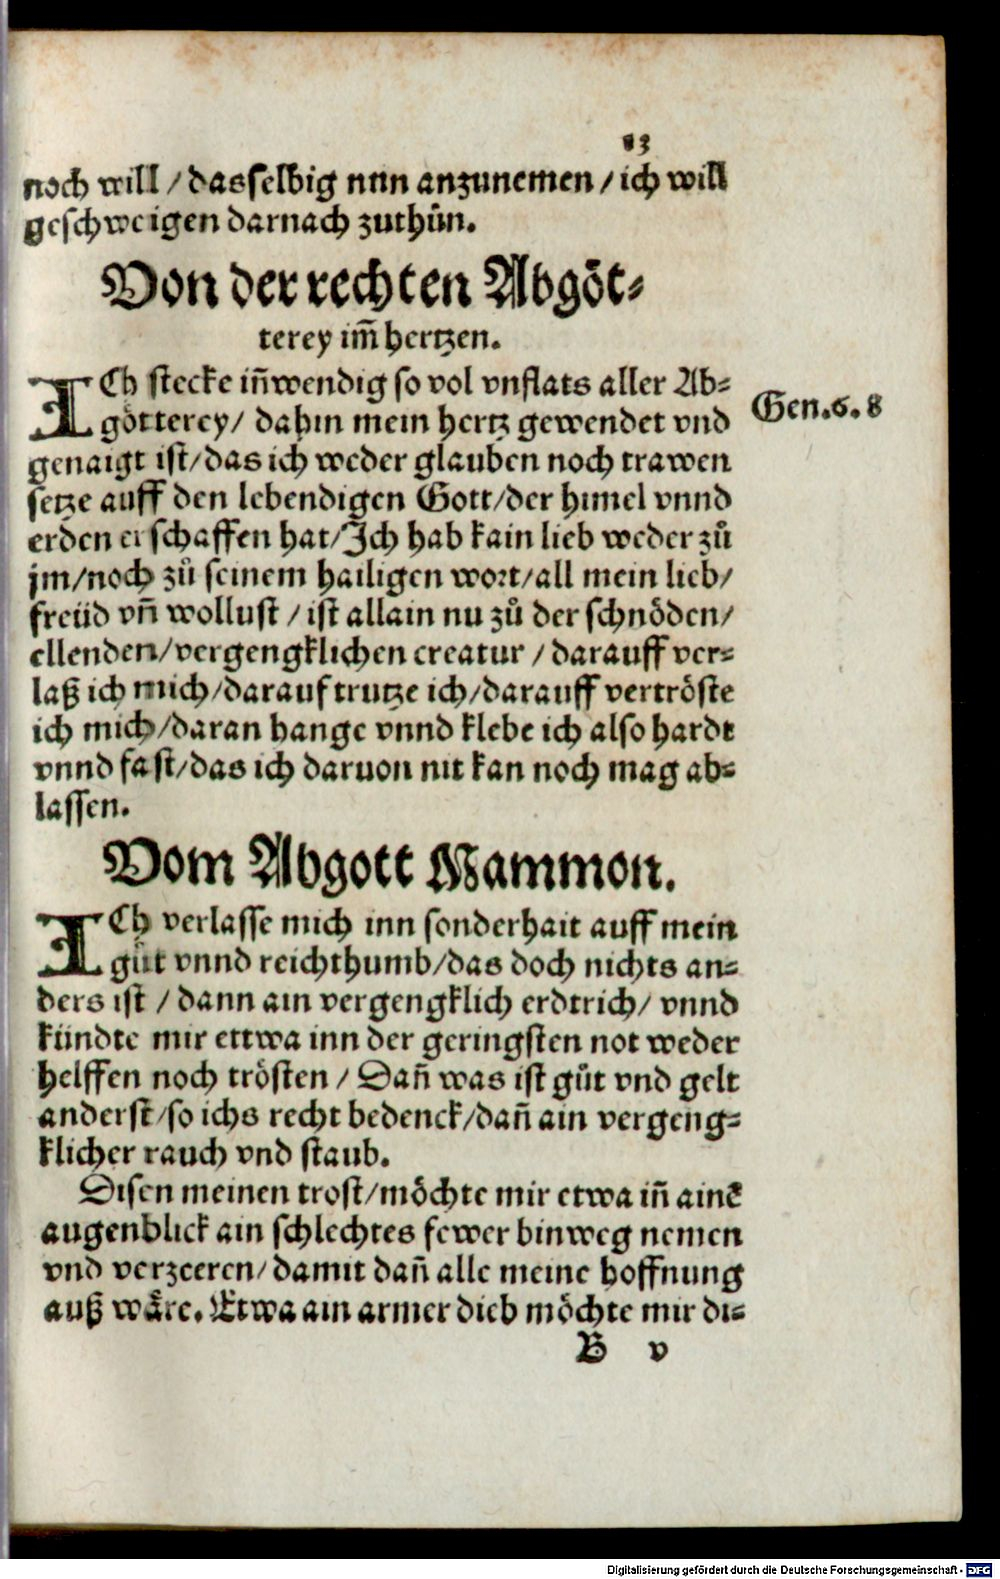 13
noch will / dasselbig nun anzunemen / ich will
geschweigen darnach zuthůn.
Von der rechten Abgöt-
terey im̃ hertzen.
ICh stecke iñwendig so vol vnflats aller Ab-
götterey / dahin mein hertz gewendet vnd
genaigt ist / das ich weder glauben noch trawen
setze auff den lebendigen Gott / der himel vnnd
erden erschaffen hat / Ich hab kain lieb weder zů
jm / noch zů seinem hailigen wort / all mein lieb /
freüd vñ wollust / ist allain nu zů der schnöden /
ellenden / vergengklichen creatur / darauff ver-
laß ich mich / darauf trutze ich / darauff vertröste
ich mich / daran hange vnnd klebe ich also hardt
vnnd fast / das ich daruon nit kan noch mag ab-
lassen.
Gen.6. 8
Vom Abgott Mammon.
ICh verlasse mich inn sonderhait auff mein
gůt vnnd reichthumb / das doch nichts an-
ders ist / dann ain vergengklich erdtrich / vnnd
kündte mir ettwa inn der geringsten not weder
helffen noch trösten / Dañ was ist gůt vnd gelt
anderst / so ichs recht bedenck / dañ ain vergeng-
klicher rauch vnd staub.
Disen meinen trost / möchte mir etwa iñ ainẽ
augenblick ain schlechtes fewer hinweg nemen
vnd verzeeren / damit dañ alle meine hoffnung
auß wäre. Etwa ain armer dieb möchte mir di-
B v
Digitalisierung gefördert durch die Deutsche Forschungsgemeinschaft - DFG